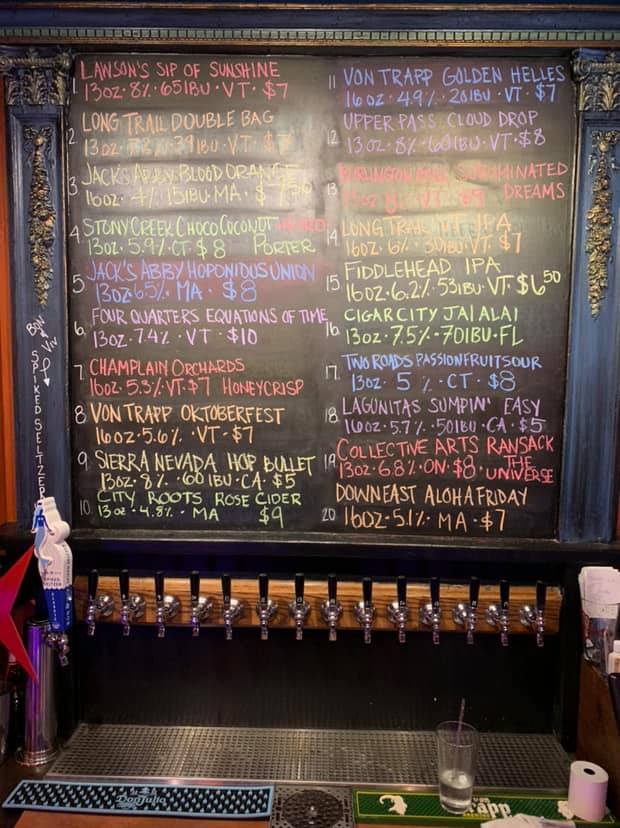 1. LAWSON'S SIP OF SUNSHINE
13OZ · 8% · 65IBU · VT · $7
2. LONG TRAIL DOUBLE BAG
13OZ · 39IBU · VT ·
3. JACK'S ABBY BLOOD ORANGE
16OZ · 4% · 15IBU · MA · $7.50
4. STONY CREEK CHOCO COCONUT
13OZ · 5.9% · CT · $8 PORTER
5. JACK'S ABBY HOPONIDOUS UNION
13OZ · 6.5% · MA · $8
6. FOUR QUARTERS EQUATIONS OF TIME
13OZ · 7.4% · VT · $10
7. CHAMPLAIN ORCHARDS
16OZ · 5.3% · VT · $7 HONEYCRISP
8. VON TRAPP OKTOBERFEST
16OZ · 5.6% · VT · $7
9. SIERRA NEVADA HOP BULLET
13OZ · 8% · 60IBU · CA · $5
10. CITY ROOTS ROSE CIDER
13OZ · 4.8% · MA $9
11 VON TRAPP GOLDEN HELLES
16OZ · 4.9% · 20IBU · VT · $7
12 UPPER PASS CLOUD DROP
13OZ · 8% · 60IBU · VT · $8
13 SUBDOMINATED
DREAMS
14 LONG TRAIL IPA
16OZ · 6% · 30IBU · VT · $7
15. FIDDLEHEAD IPA
16OZ · 6.2% · 53IBU · VT · $6.50
16 CIGAR CITY JAI ALAI
13OZ · 7.5% · 70IBU · FL
17. TWO ROADS PASSIONFRUIT SOUR
13OZ · 5% · CT · $8
18. LAGUNITAS SUMPIN' EASY
16OZ · 5.7% · 50IBU · CA · $5
19. COLLECTIVE ARTS RANSACK
13OZ · 6.8% · ON · $8 · THE
UNIVERSE
20 DOWNEAST ALOHA FRIDAY
16OZ · 5.1% · MA · $7
BON & VIV
SPIKED SELTZER
Don Julio
Trapp